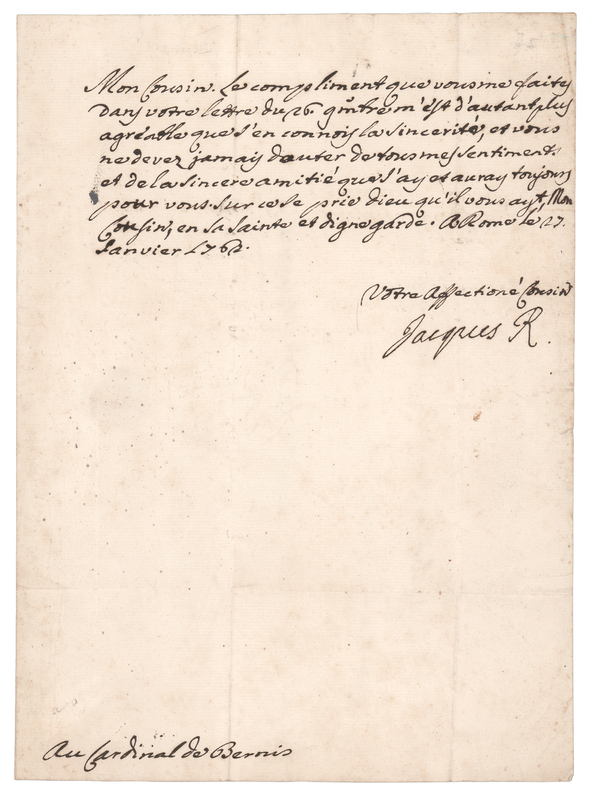 Mon Cousin. Le compliment que vous me faites
Dans votre lettre du 26. m'est d'autant plus
agréable que j'en connois la sincerité, et vous
ne devez jamais douter de tous mes sentiments
et de la sincere amitié que j'ay et auray toujours
pour vous. Sur ce je prie dieu qu'il vous ayt, Mon
Cousin, en sa sainte et digne garde. A Rome le 27.
Janvier
Votre Affectioné Cousin
Jacques R.
Au Cardinal de Bernis